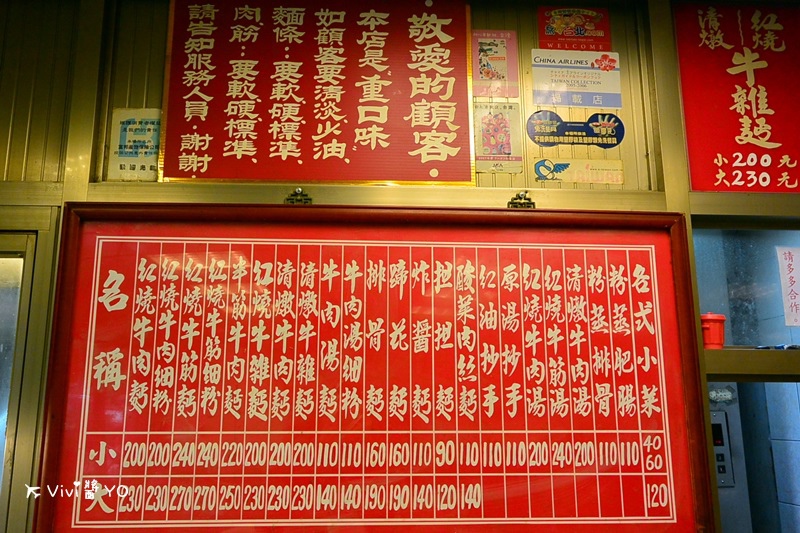 敬愛的顧客.
本店是重口味
如顧客要清淡火油、
麵條:要軟硬標準、
肉筋:要軟硬標準、
請告知服務人員.謝謝
WELCOME
CHINA AIRLINES
TAIWAN COLLECTION
紅燒
清燉
牛雜麵
小200元
大230元
請多多合作
名稱
紅燒牛肉麵
紅燒牛肉細粉
紅燒牛筋麵
紅燒牛筋細粉
半筋牛肉麵
紅燒牛雜麵
清燉牛肉麵
清燉牛雜麵
牛肉湯麵
牛肉湯細粉
排骨麵
蹄花麵
炸醬麵
担担麵
酸菜肉絲麵
紅油抄手
原湯抄手
紅燒牛肉湯
紅燒牛筋湯
清燉牛肉湯
粉蒸排骨
粉蒸肥腸
各式小菜
小 200 200 240 240 220 200 200 200 110 110 160 160 110 90 110 110 110 200 240 200 110 110 40 60
大 230 230 270 270 250 230 230 230 140 140 190 190 140 120 140 120
Vivi YO